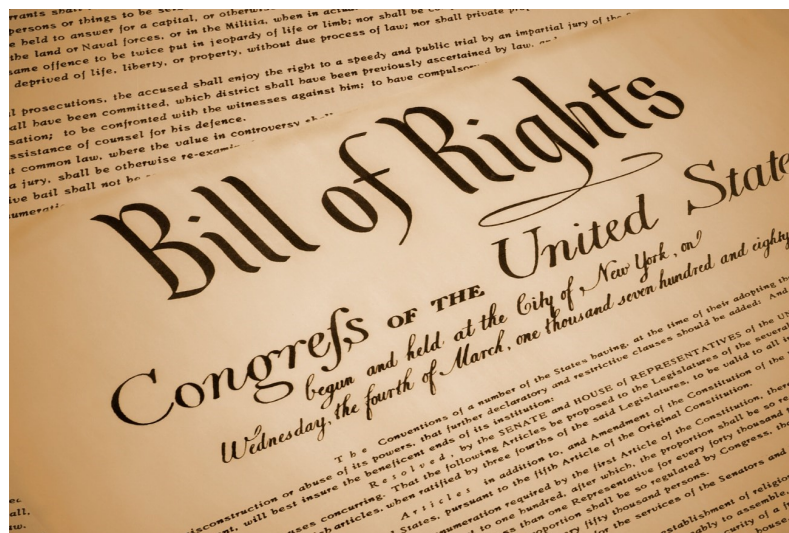 rrants shall
persons or things to be se
e held to answer for a capital, or otherwi
the land or Naval forces, or in the Militia, when in actua
same offence to be twice put in jeopardy of life or limb; nor shall be c
deprived of life, liberty, or property, without due process of law; nor shall private prop
l prosecutions, the accused shall enjoy the right to a speedy and public trial by an impartial jury of the S
all have been committed, which district shall have been previously ascertained by law, and
sation; to be confronted with the witnesses against him; to have compulsory
ssistance of counsel for his defence.
t common law, where the value in controversy shall
a jury, shall be otherwise re-exami
ive bail shall not be
numerati
Bill of Rights
Congreſs OF THE United State
begun and held at the City of New York, on
Wednesday, the fourth of March, one thousand seven hundred and eighty
The Conventions of a number of the States having, at the time of their adopting the
isconstruction or abuse of its powers, that further declaratory and restrictive clauses should be added: And
nt, will best insure the beneficent ends of its institution:
Resolved, by the SENATE and HOUSE of REPRESENTATIVES of the UN
uses concurring. That the following Articles be proposed to the Legislatures of the several
h articles, when ratified by three fourths of the said Legislatures, to be valid to all in
Articles in addition to, and Amendment of the Constitution of the
States, pursuant to the fifth Article of the Original Constitution.
numeration required by the first Article of the Constitution, there
to one hundred, after which, the proportion shall be so re
ess than one Representative for every forty thousand p
roportion shall be so regulated by Congress, the
ery fifty thousand persons.
for the services of the Senators and
establishment of religio
ably to assemble,
curity of a f
house,
all.
aw.